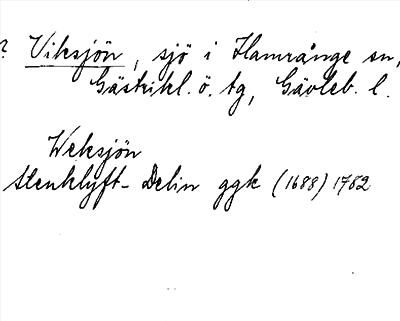 ? Viksjön, sjö i Hamrånge sn,
Gästrikl. ö. tg, Gävleb. l.
Weksjön
Stenklyft-Delin ggk (1688) 1782